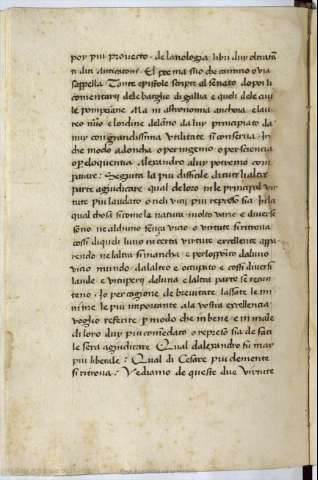 poy piu provecto. de lanologia libri duy oltra tan
ti duti anticatoni. El poema suo che camino o via
sappella Tante epistole scripte al senato dopo li
comentarij dele bataglie di gallia e queli dele civi
le pompeiane Ma in astronomia anchora e lau
reo nuo e lordine delano da luy principiato da
nuy con grandissima veducate si conserva. In
che modo adoncha o per ingenio o per sciencia
o per eloquentia Alexandro aluy potremo com
parare: Seguita la piu difficile di tute laltre
parte a giudicare qual de loro in le principal vir
tute piu laudato o ne li vicij piu represo sia. In la
qual chosa si come la natura molto varie e diverse
seno ne alchuno senza vicio o virtute si ritrova
cossi di queli luno in certa virtute excellente appa
rendo ne laltra si mancha e per lo opposito da luno
vicio mundo. da laltro e occupato e cossi diverse
laude e vituperij de luna e laltra parte se troua
reno. Io per cagione de brevitate lassate le mi
nime le piu importante a la vostra excellentia
voglio referire per modo che in bene e in male
di loro duy piu comendato o represo sia de faci
le sera a giudicare Qual dalexandro fu may
piu liberale: Qual di Cesare piu clemente
si ritrova: Vediamo de queste due virtute